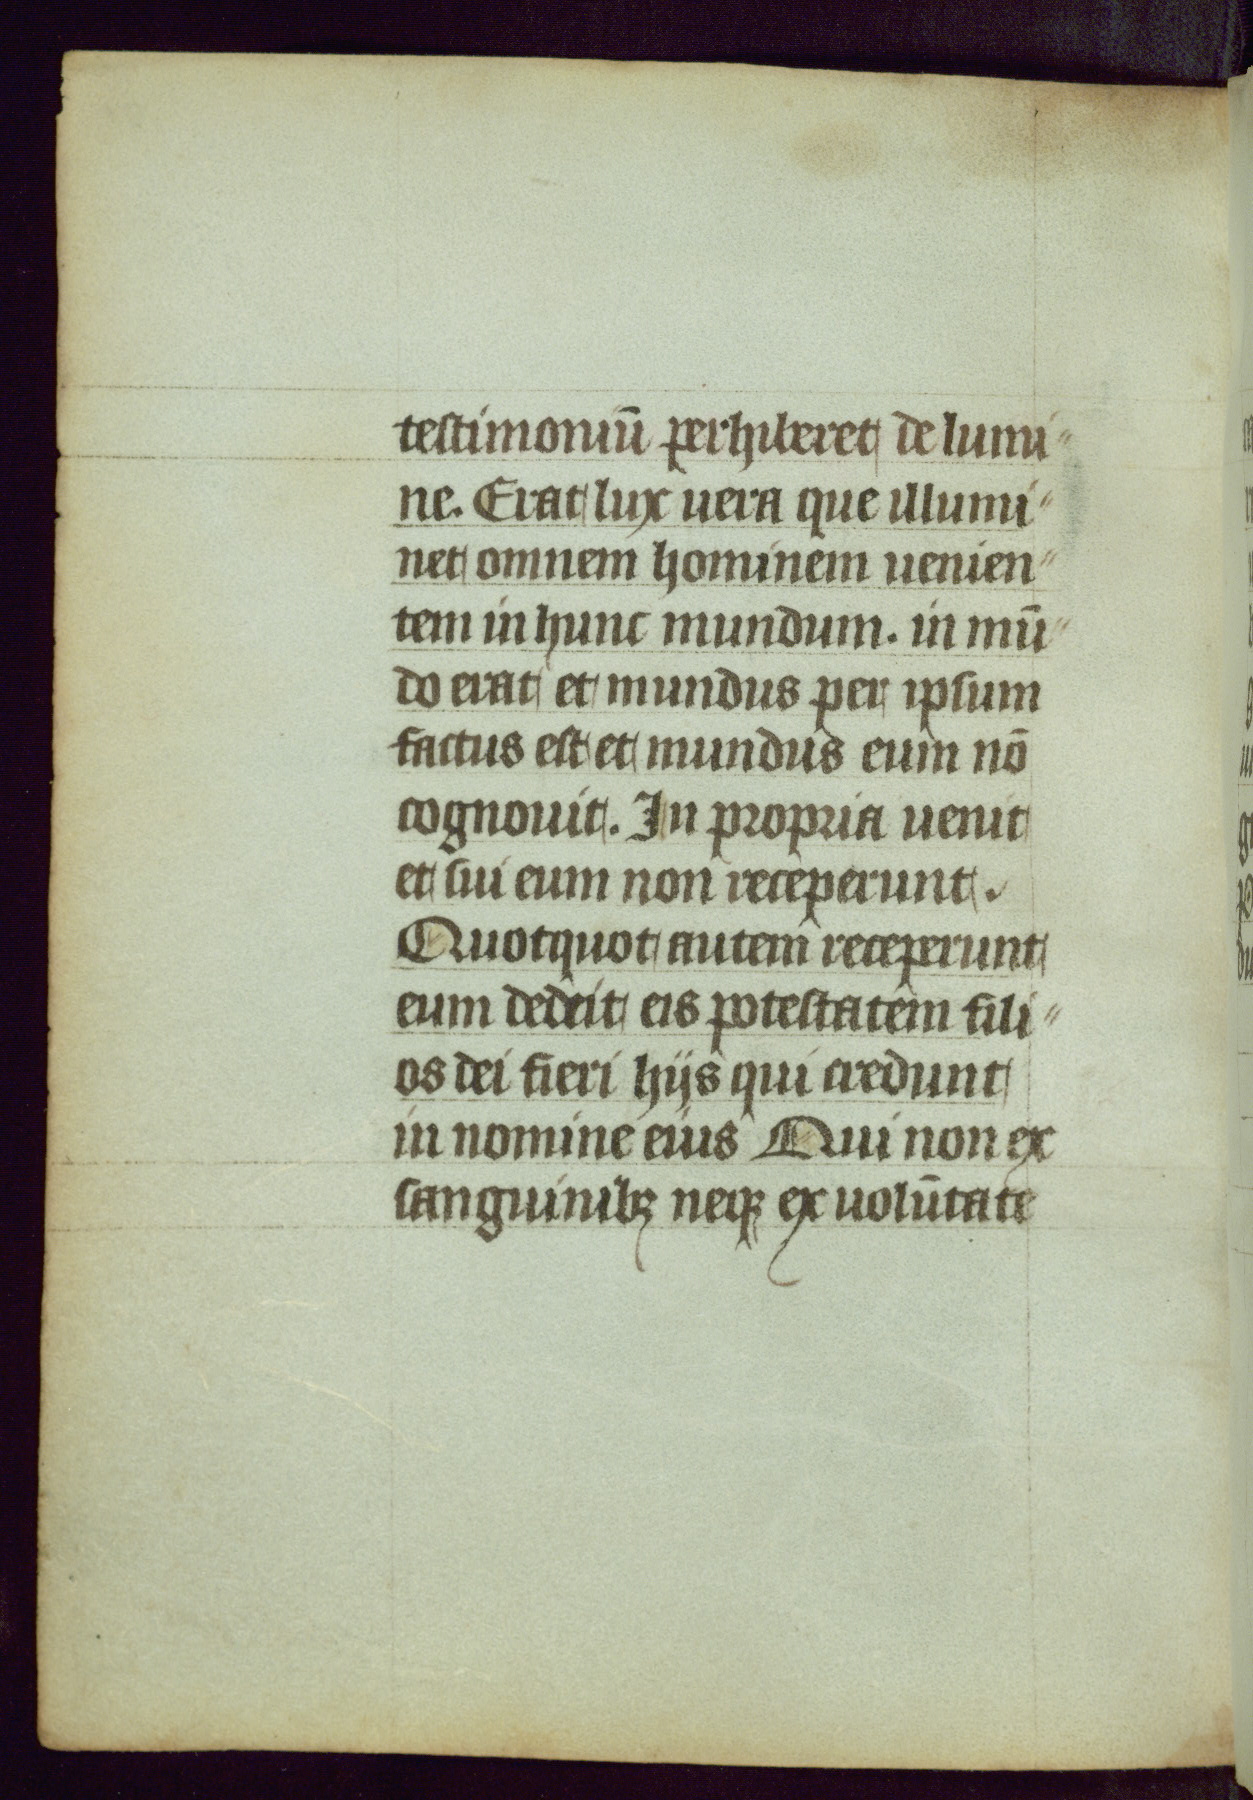 testimoniū perhiberet de lumi"
ne. Erat lux uera que illumi"
net omnem hominem uenien"
tem in hunc mundum. in mū"
do erat et mundus per ipsum
factus est et mundus eum nō
cognouit. In propria uenit
et sui eum non receperunt.
Quotquot autem receperunt
eum dedeit eis potestatem fili"
os dei fieri hijs qui credunt
in nomine eius Qui non ex
sanguinibꝫ neqꝫ ex uolūtate